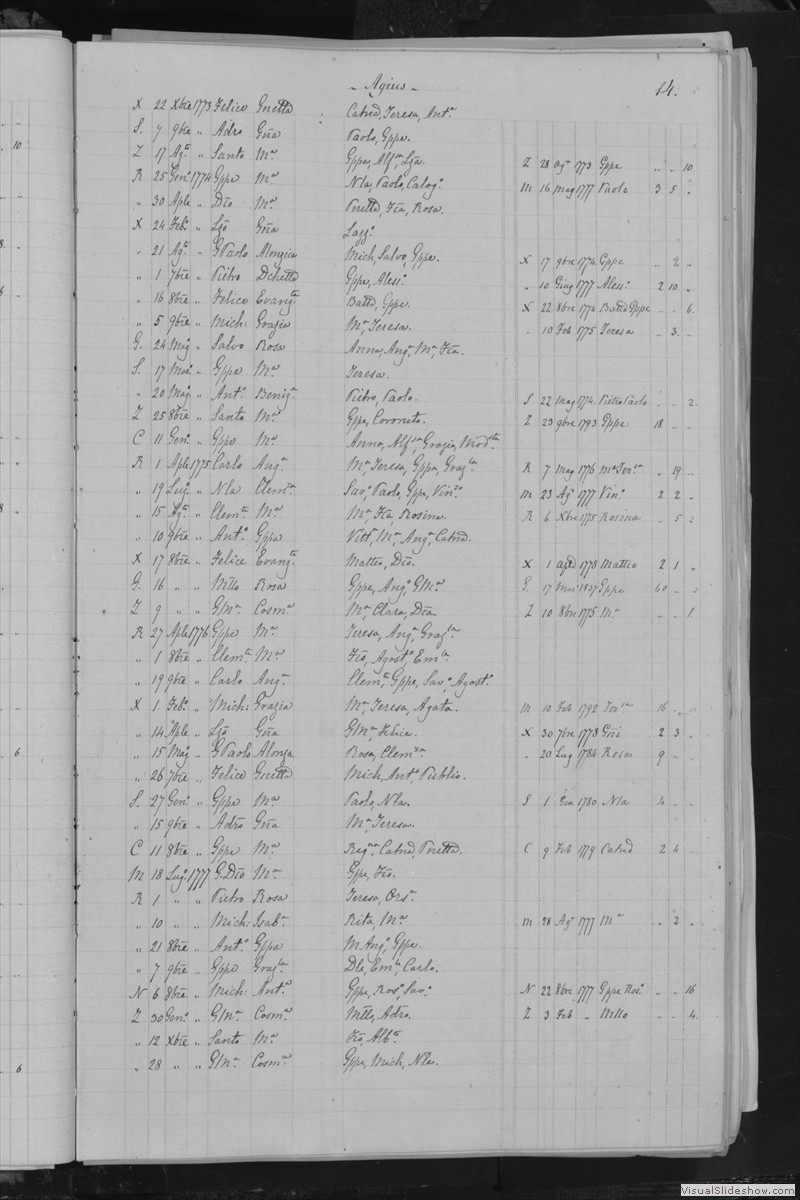 ~ Agius ~ 14.
X 22 Xbre 1773 Felice Gnetta Catnd, Teresa, Ant.a
S. 7 9bre " Adro Gña Paolo, Gppe.
Z 17 Ag.o " Santo M.a Gppa, Alf.sa, Lja. Z 28 ag.o 773 Gppe " " 10
R 25 Gen.o 1774 Gppe M.a Nla, Paolo, Calog.o M 16 mag 1777 Paolo 3 5 "
" 30 Aple " Dco M.a Pnetta, Fca, Rosa.
X 24 Feb.o " Ljo Gña Lazz.o
" 21 Ag.o " G Paolo Alonzica Mich, Salvo, Gppe. X 17 9bre 1774 Gppe " 2 "
" 1 7bre " Pietro Dchetta Gppe, Aless.o " 10 Giug 1777 Aless.o 2 10 "
" 16 8bre " Felice Evang.ta Batta, Gppe. X 22 8bre 1774 Batta Gppe " " 6.
" 5 9bre " Mich: Grazia M.a Teresa. " 10 Feb 1775 Teresa " 3. "
G. 24 Mag " Salvo Rosa Anna, Ang.a M.a Fca.
S. 17 Mar. " Gppe M.a Teresa.
" 20 Mag " Ant.o Benig.a Pietro, Paolo. S 22 mag 1774 Pietro Paolo " " 2.
Z 25 8bre " Santo M.a Gppa, Coroneto. Z 23 9bre 1793 Gppe 18 " "
C 11 Gen.o " Gppe M.a Anna, Alf.sa, Grazia, Mod.ta
R 1 Aple 1775 Carlo Ang.a M.a Teresa, Gppa, Graz.la R 7 mag 1776 M.a Ter.a " 19 "
" 19 Lug.o " Nla Clem.za Sav.o Paolo, Gppa, Vin.zo M 23 Ag.o 1777 Vin.o 2 2 "
" 15 Ag.o " Clem.te M.a M.a Fca, Rosina. R 6 Xbre 1775 Rosina " 5 2
" 10 9bre " Ant.o Gppa Vitt.a M.a Ang.a Catnd.
X 17 8bre " Felice Evang.ta Matteo, Dco. X 1 apl 1778 Matteo 2 1 "
G. 16 " " Mtto Rosa Gppe, Ang.o GM.a G. 17 Mar 1837 Gppe 60 " 2
Z 9 " " GM.a Cosm.a M.a Clara, Dca. Z 10 8bre 1775 M.a " " 1.
R 27 Aple 1776 Gppe M.a Teresa, Ang.a Graz.la
" 1 8bre " Clem.te M.a Fco, Agost.o Em.la
" 19 9bre " Carlo Ang.a Clem.te Gppe, Sav.o Agost.o
X 1 Feb.o " Mich: Grazia M.a Teresa, Agata. M 10 Feb 1792 16 " "
" 14 Aple " Ljo Gña GM.a Felice. X 30 7bre 1778 Gni 2 3 "
" 15 Mag " G Paolo Alonza Rosa, Clem.za " 20 Lug 1784 Rosa 9 "
" 26 7bre " Felice Gnetta Mich, Ant.o Publio.
S. 27 Gen.o " Gppe M.a Paolo, Nla. S 1 Gen 1780 Nla 4 " "
" 15 9bre " Adro Gña M.a Teresa.
C 11 8bre " Gppe M.a Reg.na Catnd, Pnetta. C 9 Feb 1779 Catnd 2 4 "
M 18 Lug.o 1777 G. Dco M.a Gppe, Fco.
R 1 " " Pietro Rosa Teresa, Ors.a
" 10 " " Mich: Isab.a Rita, M.a M 28 Ag.o 1777 M.a " 2 "
" 21 8bre " Ant.o Gppa M Ang.o, Gppe.
" 7 9bre " Gppe Graz.la Dla, Em.la, Carlo.
N 6 8bre " Mich: Ant.a Gppe, Ros.o Sav.o N 22 8bre 1777 Gppe Ros.o " " 16
Z 30 Gen.o " GM.a Cosm.a Mtto, Adro. Z 3 Feb " Mtto " " 4.
" 12 Xbre " Santo M.a Fco, Alb.to
" 28 " " GM.a Cosm.a Gppe, Mich, Nla.
10
6
6
VisualSlideshow.com